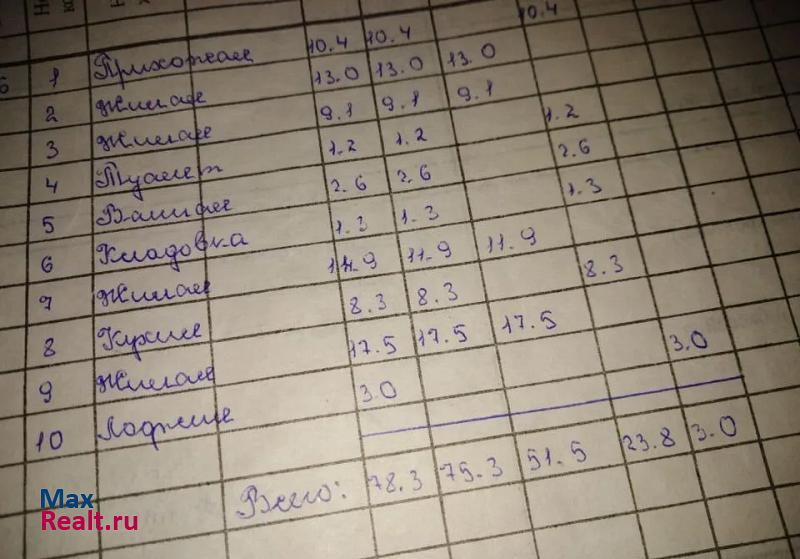 1 Прихожая 10.4 10.4 10.4
2 Жилая 13.0 13.0 13.0
3 Жилая 9.1 9.1 9.1
4 Туалет 1.2 1.2 1.2
5 Ванная 2.6 2.6 2.6
6 Кладовка 1.3 1.3 1.3
7 Жилая 11.9 11.9 11.9
8 Кухня 8.3 8.3 8.3
9 Жилая 17.5 17.5 17.5
10 Лоджия 3.0 3.0
Всего: 78.3 75.3 51.5 23.8 3.0
Max
Realt.ru